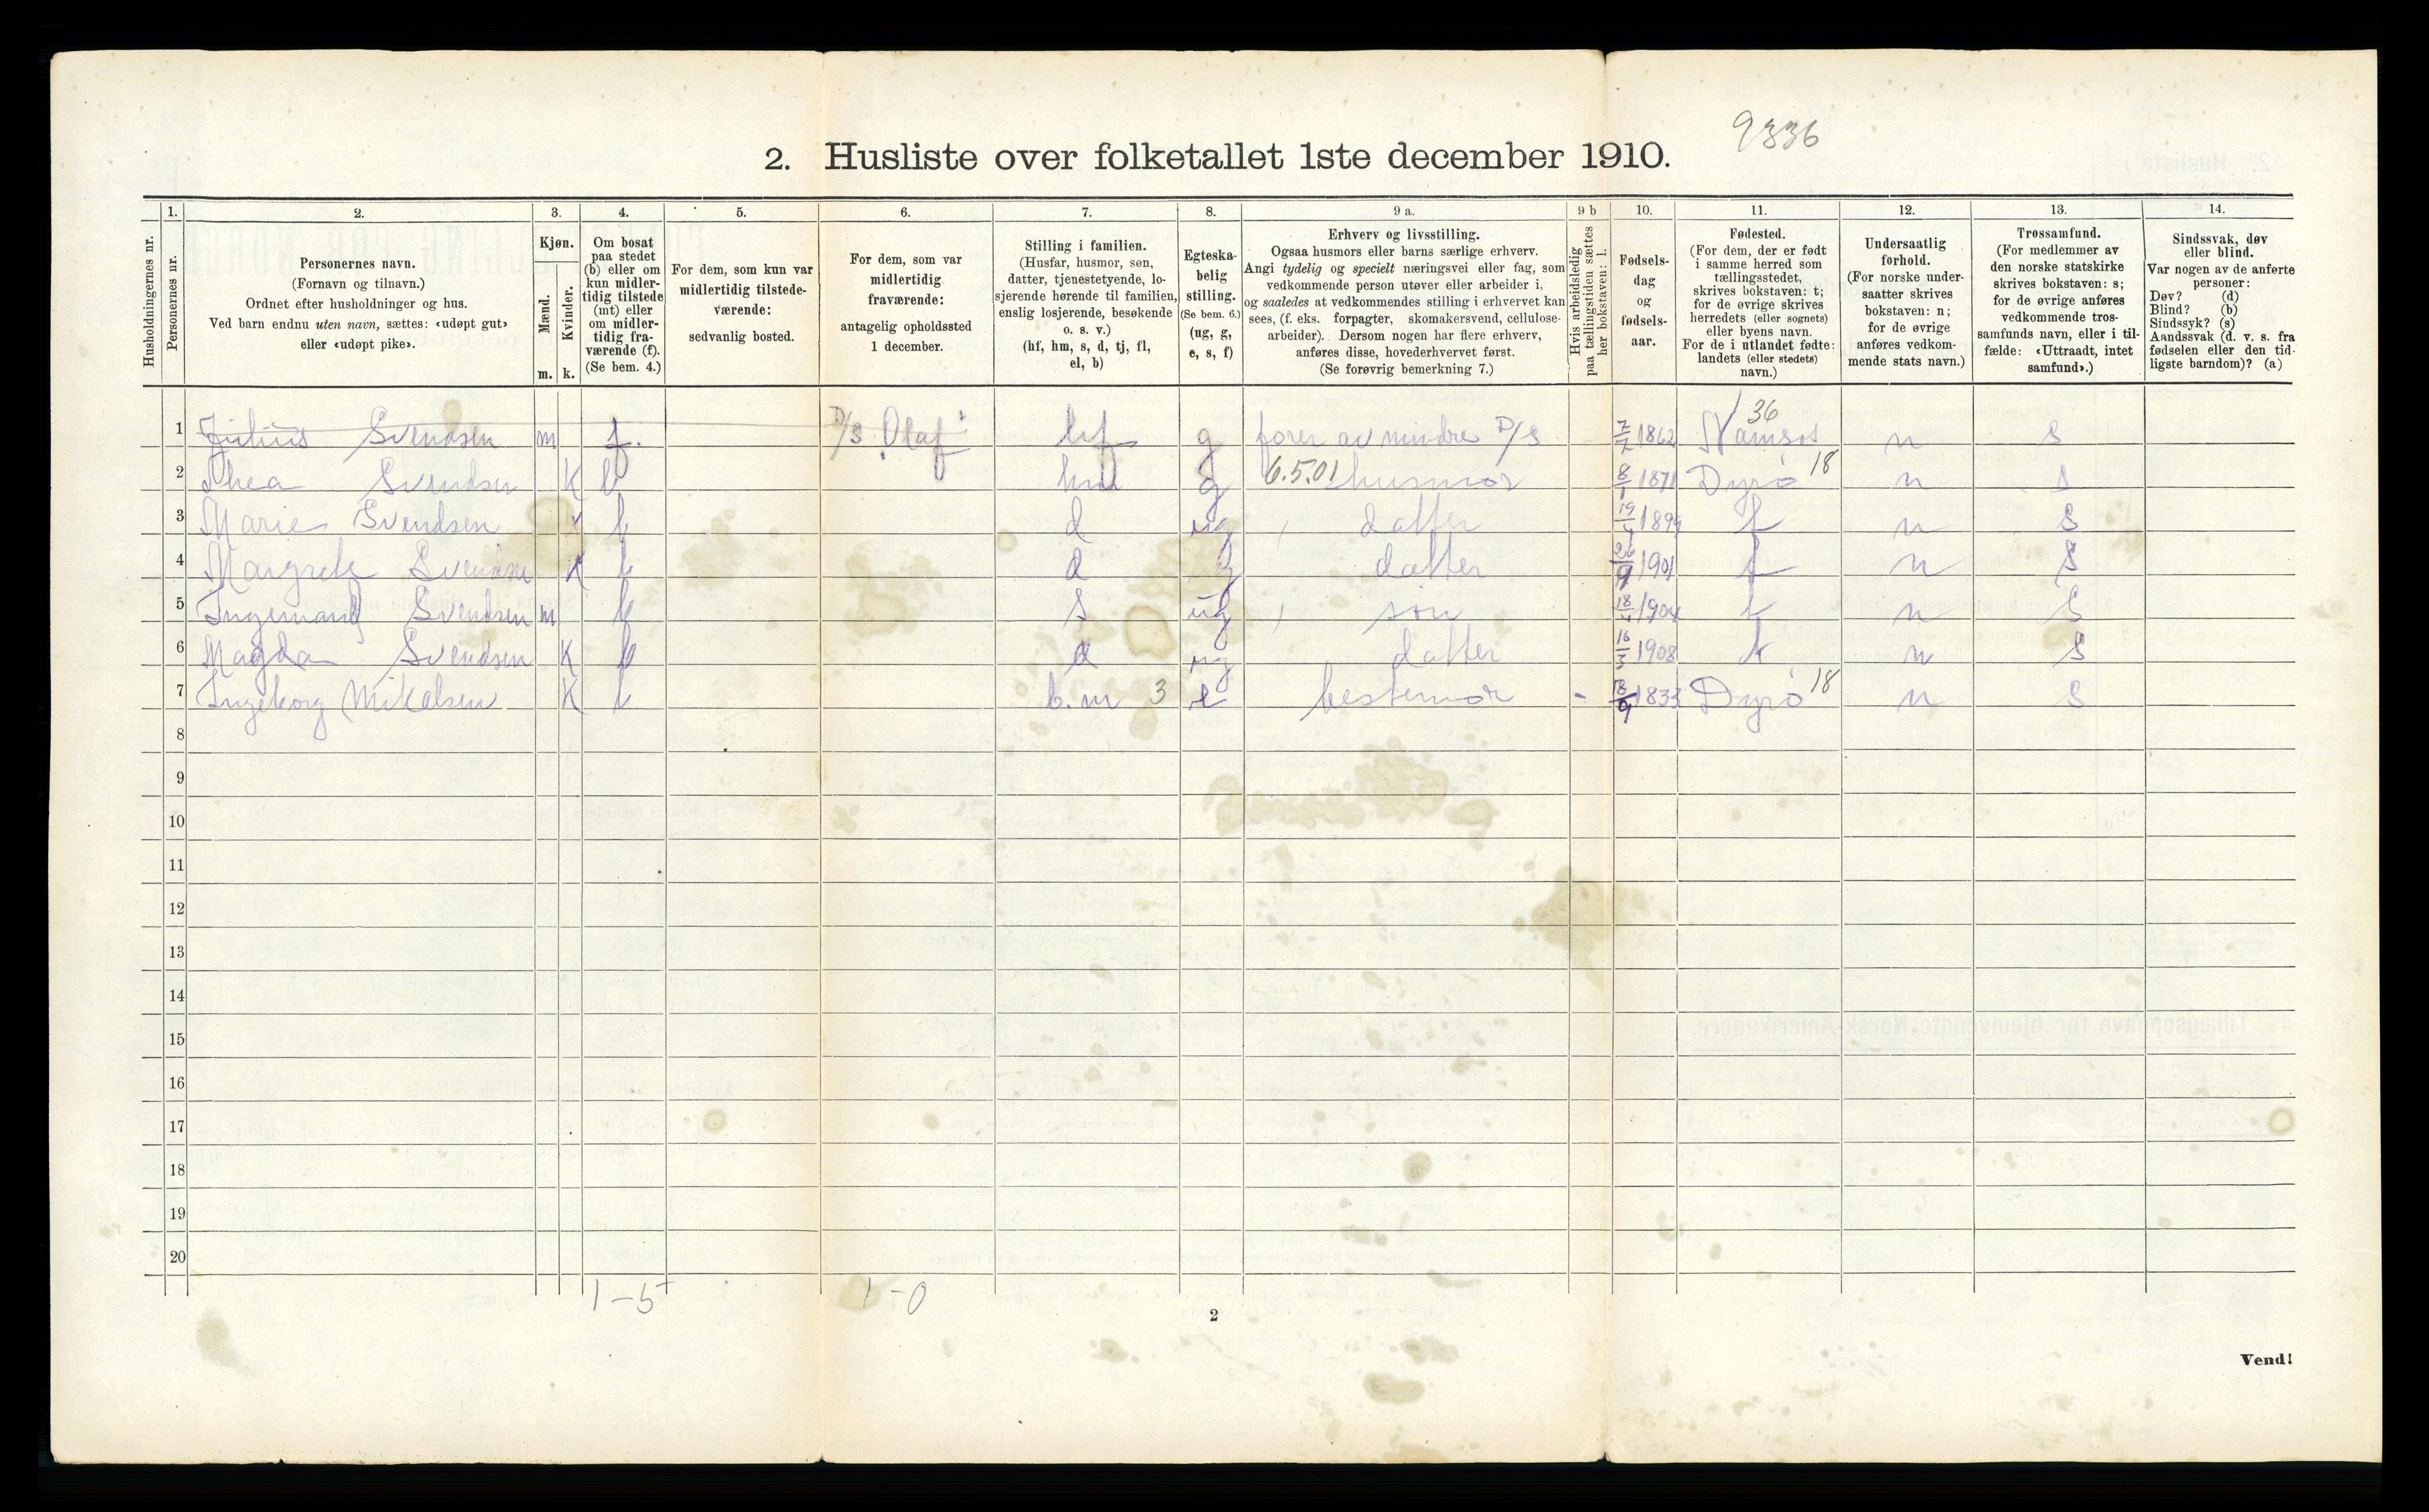 9336
2. Husliste over folketallet 1ste december 1910.
Husholdningernes nr.
1.
Personernes nr.
2.
Personernes navn.
(Fornavn og tilnavn.)
Ordnet efter husholdninger og hus.
Ved barn endnu uten navn, sættes: «udøpt gut»
eller «udøpt pike».
3.
Kjøn.
Mænd.
Kvinder.
m. k.
4.
Om bosat
paa stedet
(b) eller om
kun midler-
tidig tilstede
(mt) eller
om midler-
tidig fra-
værende (f).
(Se bem. 4.)
5.
For dem, som kun var
midlertidig tilstede-
værende:
sedvanlig bosted.
6.
For dem, som var
midlertidig
fraværende:
antagelig opholdssted
1 december.
7.
Stilling i familien.
(Husfar, husmor, søn,
datter, tjenestetyende, lo-
sjerende hørende til familien,
enslig losjerende, besøkende
o. s. v.)
(hf, hm, s, d, tj, fl,
el, b)
8.
Egteska-
belig
stilling.
(Se bem. 6.)
(ug, g,
e, s, f)
9 a.
Erhverv og livsstilling.
Ogsaa husmors eller barns særlige erhverv.
Angi tydelig og specielt næringsvei eller fag, som
vedkommende person utøver eller arbeider i,
og saaledes at vedkommendes stilling i erhvervet kan
sees, (f. eks. forpagter, skomakersvend, cellulose-
arbeider). Dersom nogen har flere erhverv,
anføres disse, hovederhvervet først.
(Se forøvrig bemerkning 7.)
9 b
Hvis arbeidsledig
paa tællingstiden sættes
her bokstaven: l.
10.
Fødsels-
dag
og
fødsels-
aar.
11.
Fødested.
(For dem, der er født
i samme herred som
tællingsstedet,
skrives bokstaven: t;
for de øvrige skrives
herredets (eller sognets)
eller byens navn.
For de i utlandet fødte:
landets (eller stedets)
navn.)
12.
Undersaatlig
forhold.
(For norske under-
saatter skrives
bokstaven: n;
for de øvrige
anføres vedkom-
mende stats navn.)
13.
Trossamfund.
(For medlemmer av
den norske statskirke
skrives bokstaven: s;
for de øvrige anføres
vedkommende tros-
samfunds navn, eller i til-
fælde: «Uttraadt, intet
samfund».)
14.
Sindssvak, døv
eller blind.
Var nogen av de anførte
personer:
Døv? (d)
Blind? (b)
Sindssyk? (s)
Aandssvak (d. v. s. fra
fødselen eller den tid-
ligste barndom)? (a)
36
1 Julius Svendsen m f. D/s Olaf hf g fører av mindre D/s 7/7 1862 Namsos n s
2 Thea Svendsen K b hm g 6.5.01 husmor 8/1 1871 Dyrö 18 n s
3 Marie Svendsen K b d ug datter 19/4 1899 t n s
4 Margrete Svendsen K b d ug datter 1901 t n s
5 Svendsen m b s ug søn 1904 t n s
6 Magda Svendsen K b d ug datter 16/3 1908 t n s
7 Ingeborg Mikalsen K b b.m 3 e bestemor - 1833 Dyrö 18 n s
8
9
10
11
12
13
14
15
16
17
18
19
20
1-5 1-0
2
Vend!